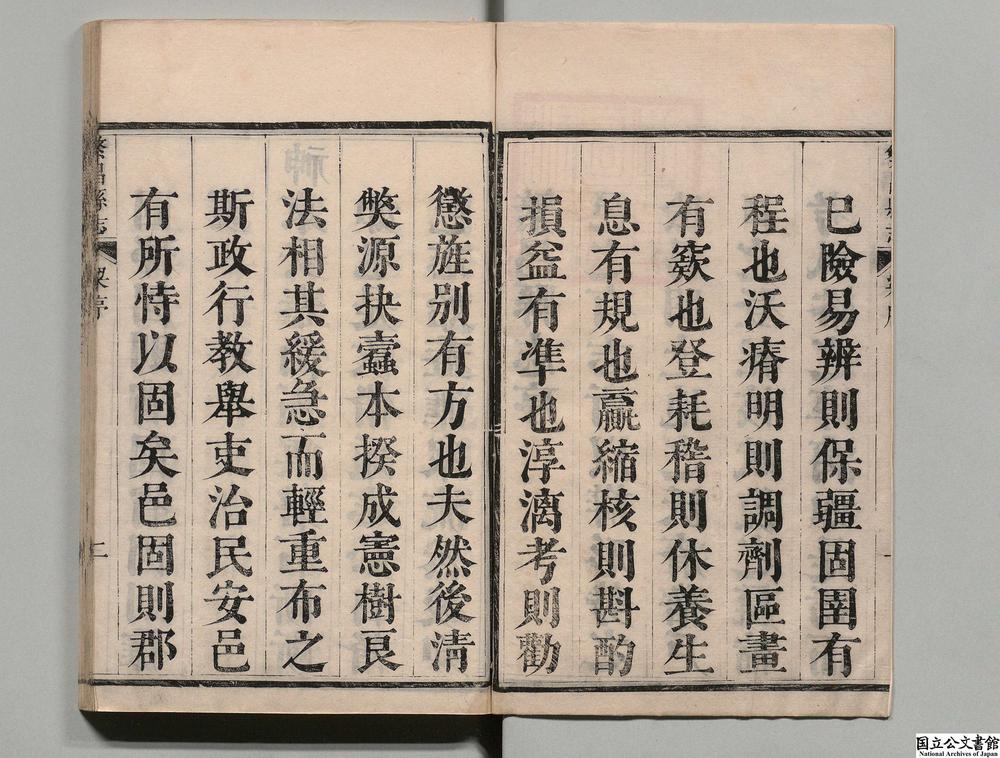 已險易辨則保疆固圉有
程也沃瘠明則調劑區畫
有窾也登耗稽則休養生
息有規也贏縮核則斟酌
損益有準也淳漓考則勸
懲旌别有方也夫然後清
獘源抉蠧本揆成憲樹良
法相其緩急而輕重布之
斯政行教舉吏治民安邑
有所恃以固矣邑固則郡
繁昌縣志
二
国立公文書館
National Archives of Japan